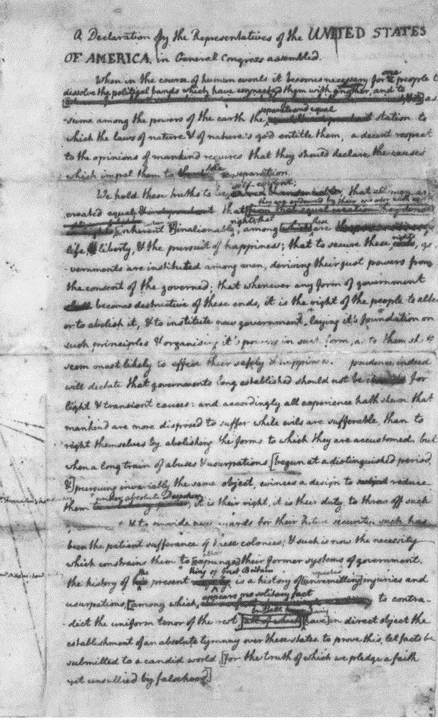 A Declaration by the Representatives of the UNITED STATES
OF AMERICA, in General Congress assembled.
When in the course of human events it becomes necessary for one people to
dissolve the political bands which have connected them with another, and to
as
separate and equal
sume among the powers of the earth the station to
which the laws of nature & of nature's god entitle them, a decent respect
to the opinions of mankind requires that they should declare the causes
which impel them to the separation.
self-evident;
We hold these truths to be that all men are
they are endowed by their creator with
created equal that
rights; that these
inherent & inalienable among are
life, liberty, & the pursuit of happiness; that to secure these rights, go
vernments are instituted among men, deriving their just powers from
the consent of the governed; that whenever any form of government
becomes destructive of these ends, it is the right of the people to alter
or to abolish it, & to institute new government, laying it's foundation on
such principles & organising it's powers in such form, as to them shall
seem most likely to effect their safety & happiness. prudence indeed
will dictate that governments long established should not be for
light & transient causes: and accordingly all experience hath shewn that
mankind are more disposed to suffer while evils are sufferable, than to
right themselves by abolishing the forms to which they are accustomed. but
when a long train of abuses & usurpations [begun at a distinguished period,
&] pursuing invariably the same object, evinces a design to reduce
under absolute Despotism
them it is their right, it is their duty, to throw off such
& to provide new guards for their future security. such has
been the patient sufferance of these colonies; & such is now the necessity
alter
which constrains them to [expunge] their former systems of government.
the king of Great Britain
the history of present is a history of [unremitting] injuries and
usurpations, [among which,
appears no solitary fact
to contra-
dict the uniform tenor of the rest, [all of which] [have] in direct object the
establishment of an absolute tyranny over these states. to prove this, let facts be
submitted to a candid world [for the truth of which we pledge a faith
yet unsullied by falsehood]